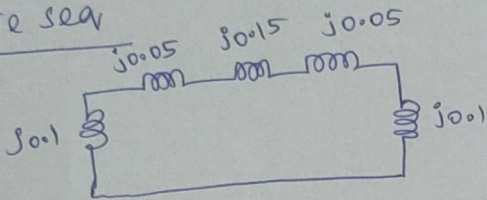 e seq
j0.05 j0.15 j0.05
j0.1 j0.1